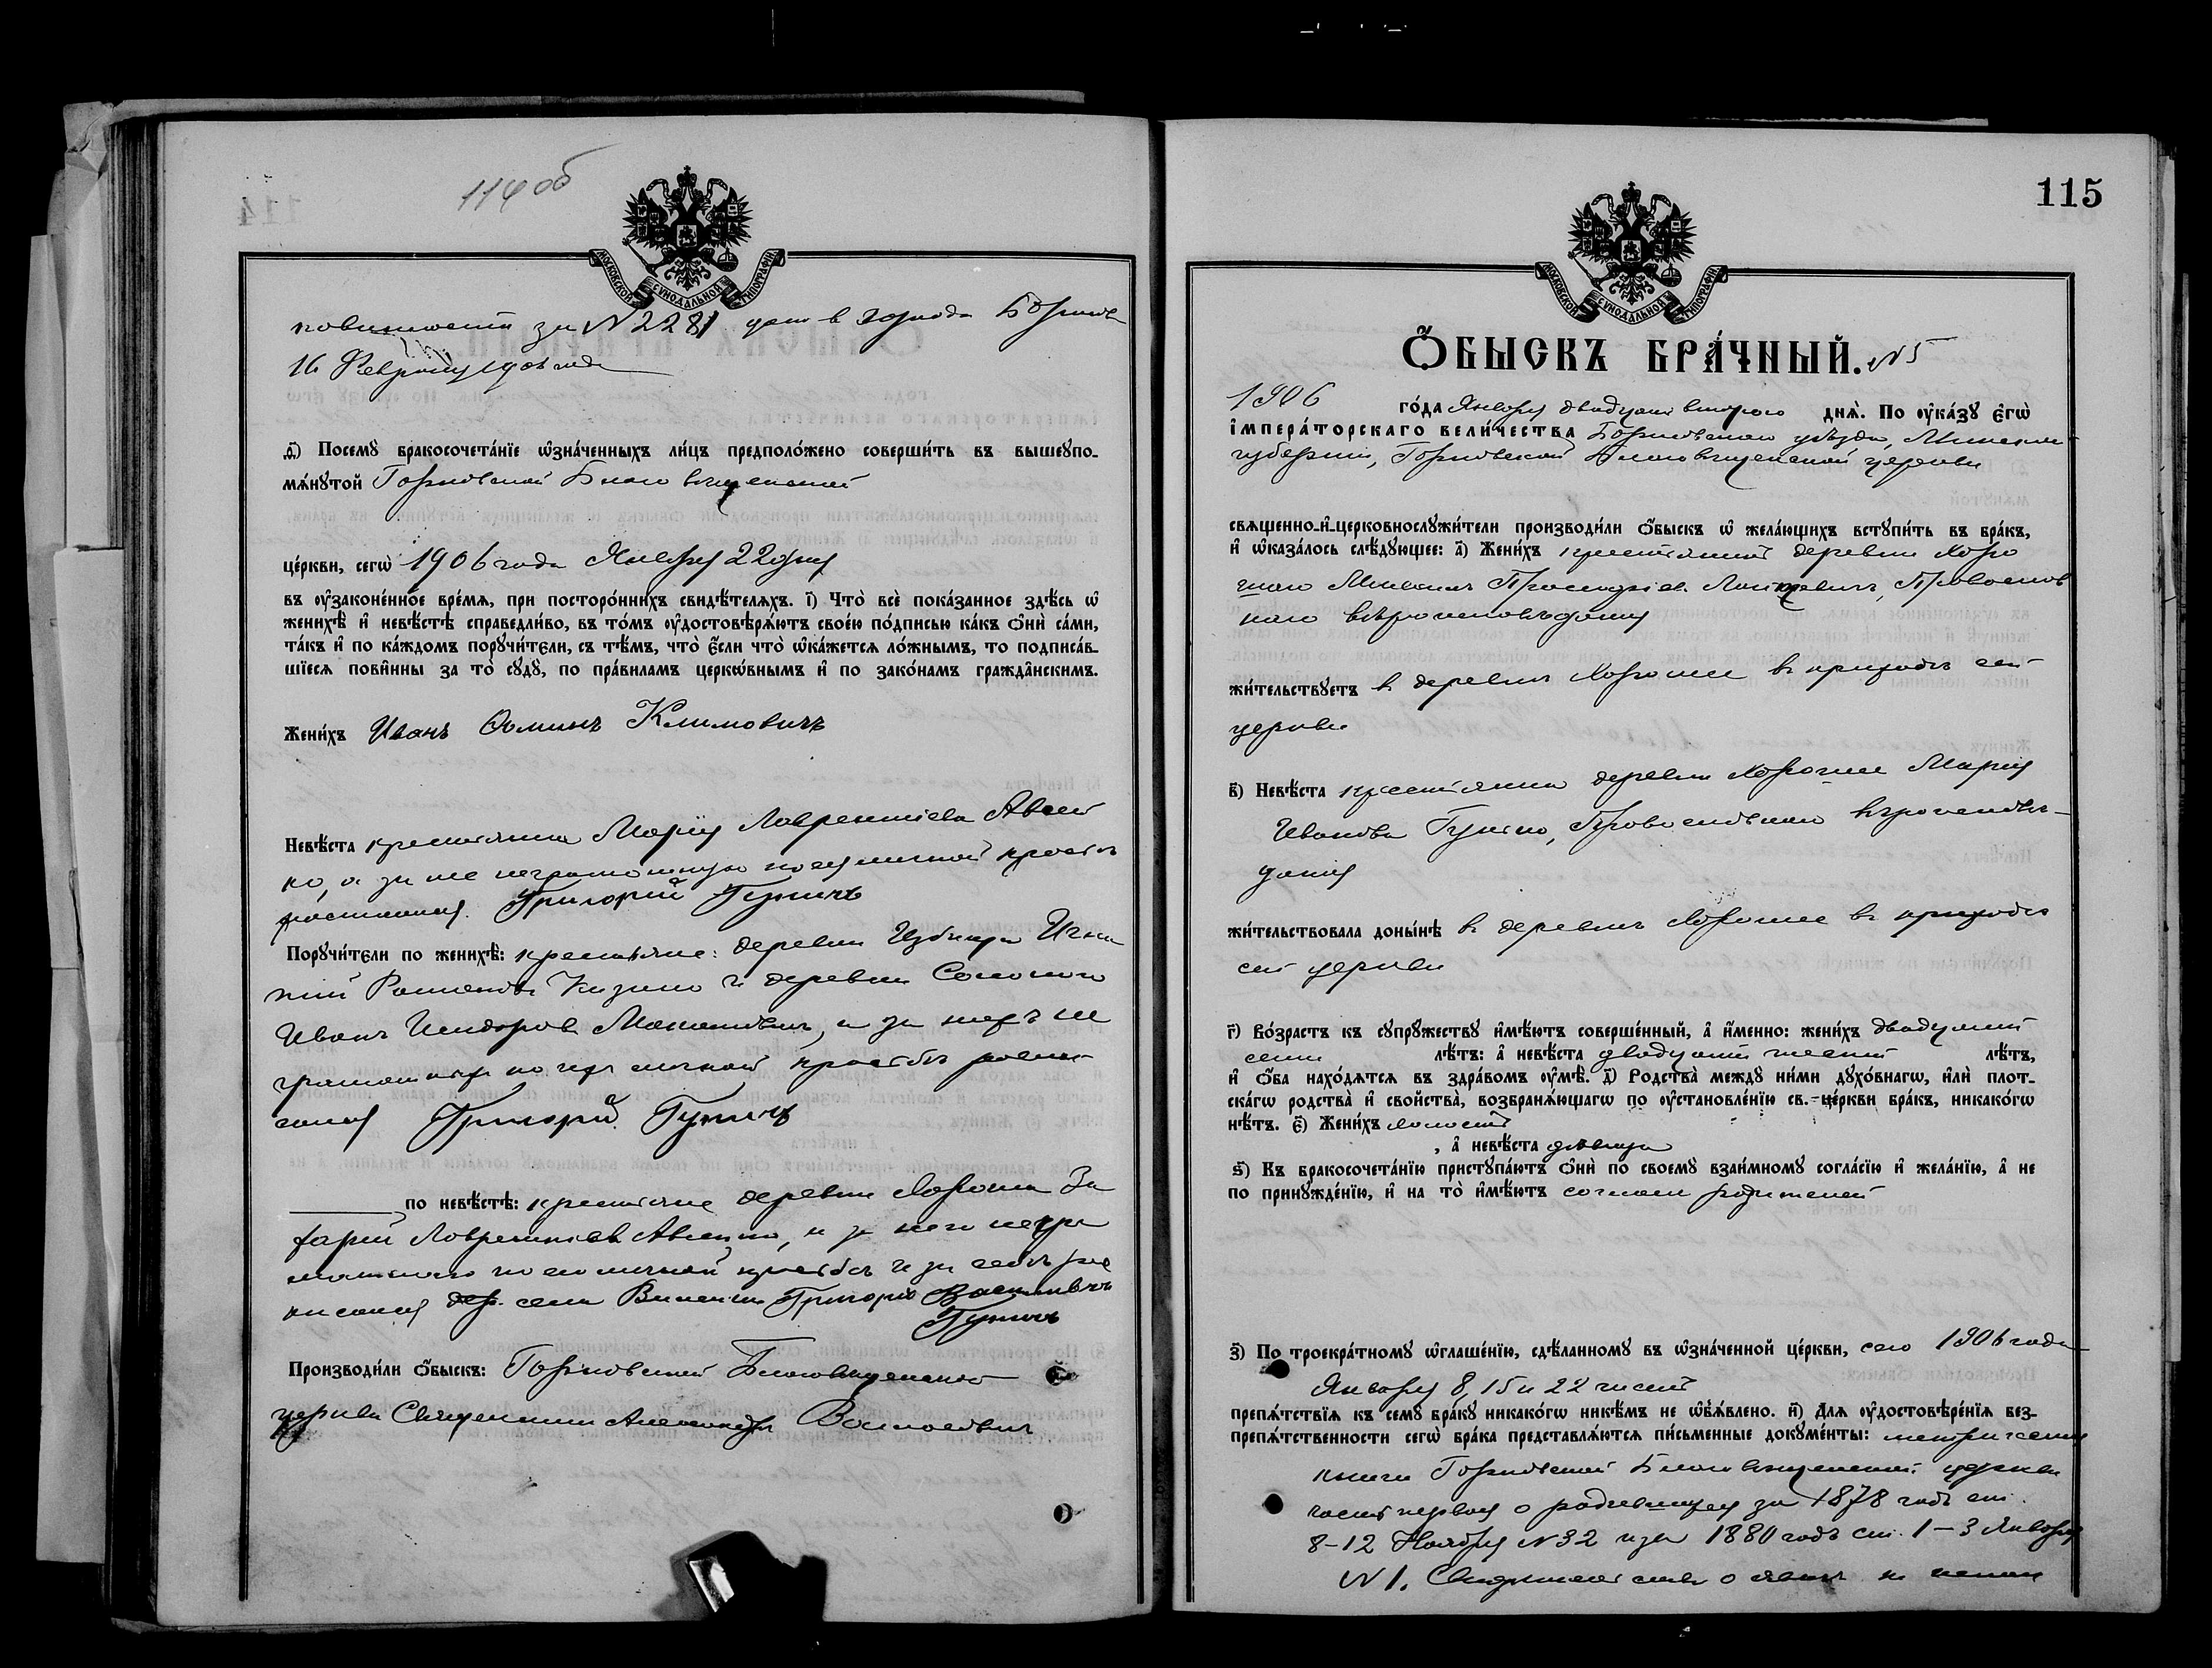 114 об
МОСКОВСКОЙ СѴНОДАЛЬНОЙ ТИПОГРАФІИ
повинности за N 2281 дано в городе Борисове
16 Февраля 190 года
ѳ҃) Посемꙋ̀ бракосочета́нїе ѡ҆зна́ченныхъ ли́цъ предполо́жено соверши́ть въ вышеꙋпо-
мѧ́нꙋтой Горковской Благовещенской
це́ркви, сегѡ̀ 1906 года Января 22 дня
въ ᲂу҆зако́ненное вре́мѧ, при посторо́ннихъ свидѣ́телѧхъ. і҃) Что̀ всѐ пока́занное здѣ́сь ѡ҆
женихѣ̀ и҆ невѣ́стѣ справедли́во, въ то́мъ ᲂу҆достовѣрѧ́ютъ свое́ю по́дписью ка́къ ѻ҆нѝ са́ми,
та́къ и҆ по ка́ждомъ порꙋчи́тели, съ тѣ́мъ, что̀ є҆́сли что̀ ѡ҆ка́жется ло́жнымъ, то подписа́в-
шїеся пови́нны за то̀ сꙋдꙋ̀, по пра́виламъ церко́внымъ и҆ по зако́намъ гражда́нскимъ.
Жени́хъ Иванъ Ѳоминъ Климовичъ
Невѣ́ста крестьянка Марія Лаврентіева Авсей
ко, а за нее неграмотную по ея личной просьбе
росписался Григорій Гуринъ
Порꙋчи́тели по женихѣ̀: крестьяне: деревни Игна
тій Романов и деревни
Иванъ Исидоров, а за неграмотных по их личной просьбе роспи
сался Григорій Гуринъ
по невѣ́стѣ: крестьяне деревни Хороша За
харій Лаврентіев Авсейко, и за него негра
мотнаго по его личной просьбе и за себя рос
писался дер. села Григорій Васильевъ
Гуринъ
Производи́ли ѻ҆́быскъ: Горковской Благовещенской
церкви Священник Александр Василевич
115
МОСКОВСКОЙ СѴНОДАЛЬНОЙ ТИПОГРАФІИ
Ѻ҆́БЫСКЪ БРА́ЧНЫЙ. N 5
1906 го́да Января двадцать второго днѧ̀. По ᲂу҆ка́зꙋ Є҆гѡ̀
І҆мпера́торскаго вели́чества Борисовскаго уѣзда, Минской
губерніи, Горковской Благовещенской церкви
свѧще́нно-и҆-церковнослꙋжи́тели производи́ли ѻ҆́быскъ ѡ҆ жела́ющихъ встꙋпи́ть въ бра́къ,
и҆ ѡ҆каза́лось слѣ́дꙋющее: а҃) Жени́хъ крестьянин деревни Хоро
шаго, Православ
наго вѣроисповѣданія
жи́тельствꙋетъ в деревне Хороше в приходе сей
церкви
в҃) Невѣ́ста крестьянка деревни Хороше Марія
Иванова, Православнаго вѣроисповѣ-
данія
жи́тельствовала доны́нѣ в деревне Хороше в приходе
сей церкви
г҃) Во́зрастъ къ сꙋпрꙋ́жествꙋ и҆мѣ́ютъ соверше́нный, а҆ и҆́менно: жени́хъ двадцать
семи лѣ́тъ: а҆ невѣ́ста двадцати шести лѣ́тъ,
и҆ ѻ҆́ба нахо́дѧтся въ здра́вомъ ᲂу҆мѣ̀. д҃) Родства̀ междꙋ ни́ми дꙋхо́внагѡ, и҆лѝ пло́т-
скагѡ родства̀ и҆ сво́йства, возбранѧ́ющагѡ по ᲂу҆становле́нїю св. це́ркви бра́къ, никако́гѡ
нѣ́тъ. є҃) Жени́хъ холостъ
, а҆ невѣ́ста дѣвица
ѕ҃) Къ бракосочета́нїю пристꙋпа́ютъ ѻ҆нѝ по своемꙋ̀ взаи́мномꙋ согла́сїю и҆ жела́нїю, а҆ не
по принꙋжде́нїю, и҆ на то̀ и҆мѣ́ютъ согласіе родителей
з҃) По троекра́тномꙋ ѡ҆глаше́нїю, сдѣ́ланномꙋ въ ѡ҆зна́ченной це́ркви, сего 1906 года
Января 8, 15 и 22 чисел
препѧ́тствїѧ къ семꙋ̀ бра́кꙋ никако́гѡ никѣ́мъ не ѡ҆б̾ѧ́влено. и҃) Длѧ ᲂу҆достовѣре́нїѧ без-
препѧ́тственности сегѡ̀ бра́ка представлѧ́ются пи́сьменные докꙋме́нты: метрическія
книги Горковской Благовещенской церкви
часть первая о родившихся за 1878 годъ ст.
8-12 Ноября N 32 и за 1880 годъ ст. 1-3 Января
N 1. Свидетельство о явке к испол